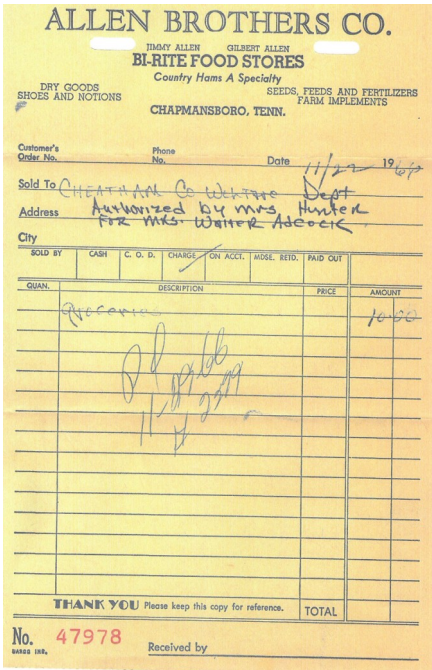 ALLEN BROTHERS CO.
JIMMY ALLEN GILBERT ALLEN
BI-RITE FOOD STORES
Country Hams A Specialty
DRY GOODS
SHOES AND NOTIONS
SEEDS, FEEDS AND FERTILIZERS
FARM IMPLEMENTS
CHAPMANSBORO, TENN.
Customer's
Order No.
Phone
No.
Date 11/22 1966
Sold To CHEATHAM Co Welfare Dept
Address Authorized by Mrs. Hunter
For Mrs. Walter Adcock
City
SOLD BY CASH C. O. D. CHARGE ON ACCT. MDSE. RETD. PAID OUT
QUAN. DESCRIPTION PRICE AMOUNT
Groceries 10.00
THANK YOU Please keep this copy for reference. TOTAL
No. 47978
Received by